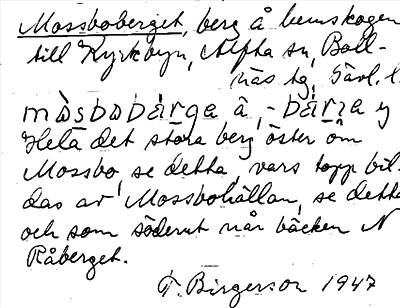 Mossboberget, berg å hemskogen
till Kyrkbyn, Alfta sn, Boll-
näs tg, Gävl. l.
mɷ̀sbɷbær̨ga â, - bær̨ɹa y
Hela det stora berg öster om
Mossbo, se detta, vars topp bil-
das av Mossbohällan, se detta
och som söderut når bäcken N
Råberget.
T. Birgerson 1947